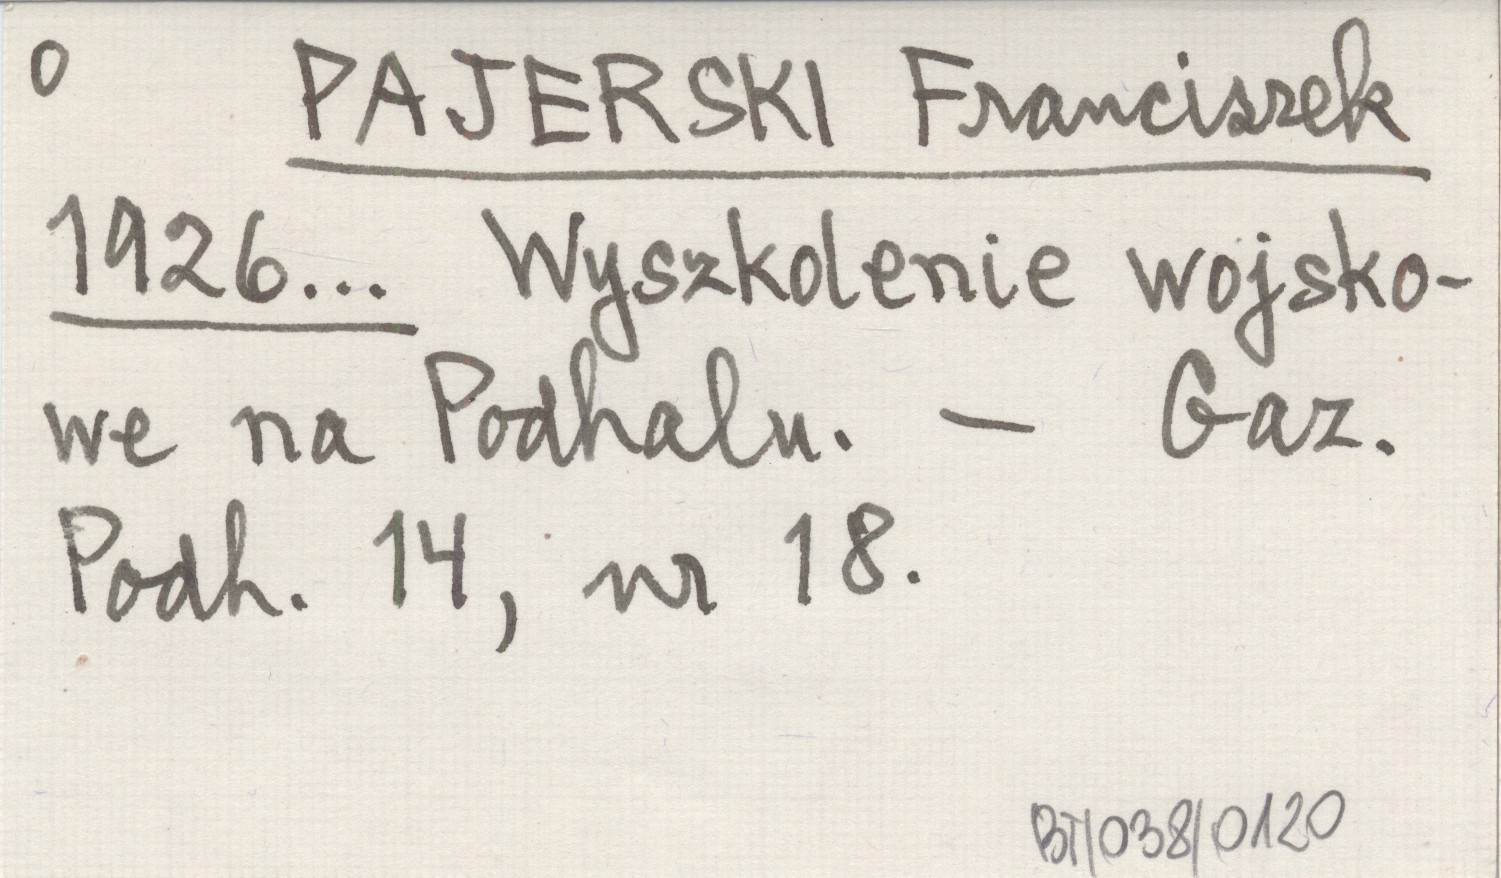 O PAJERSKI Franciszek
1926... Wyszkolenie wojsko-
we na Podhalu. — Gaz.
Podh. 14, nr 18.
BT/038/0120